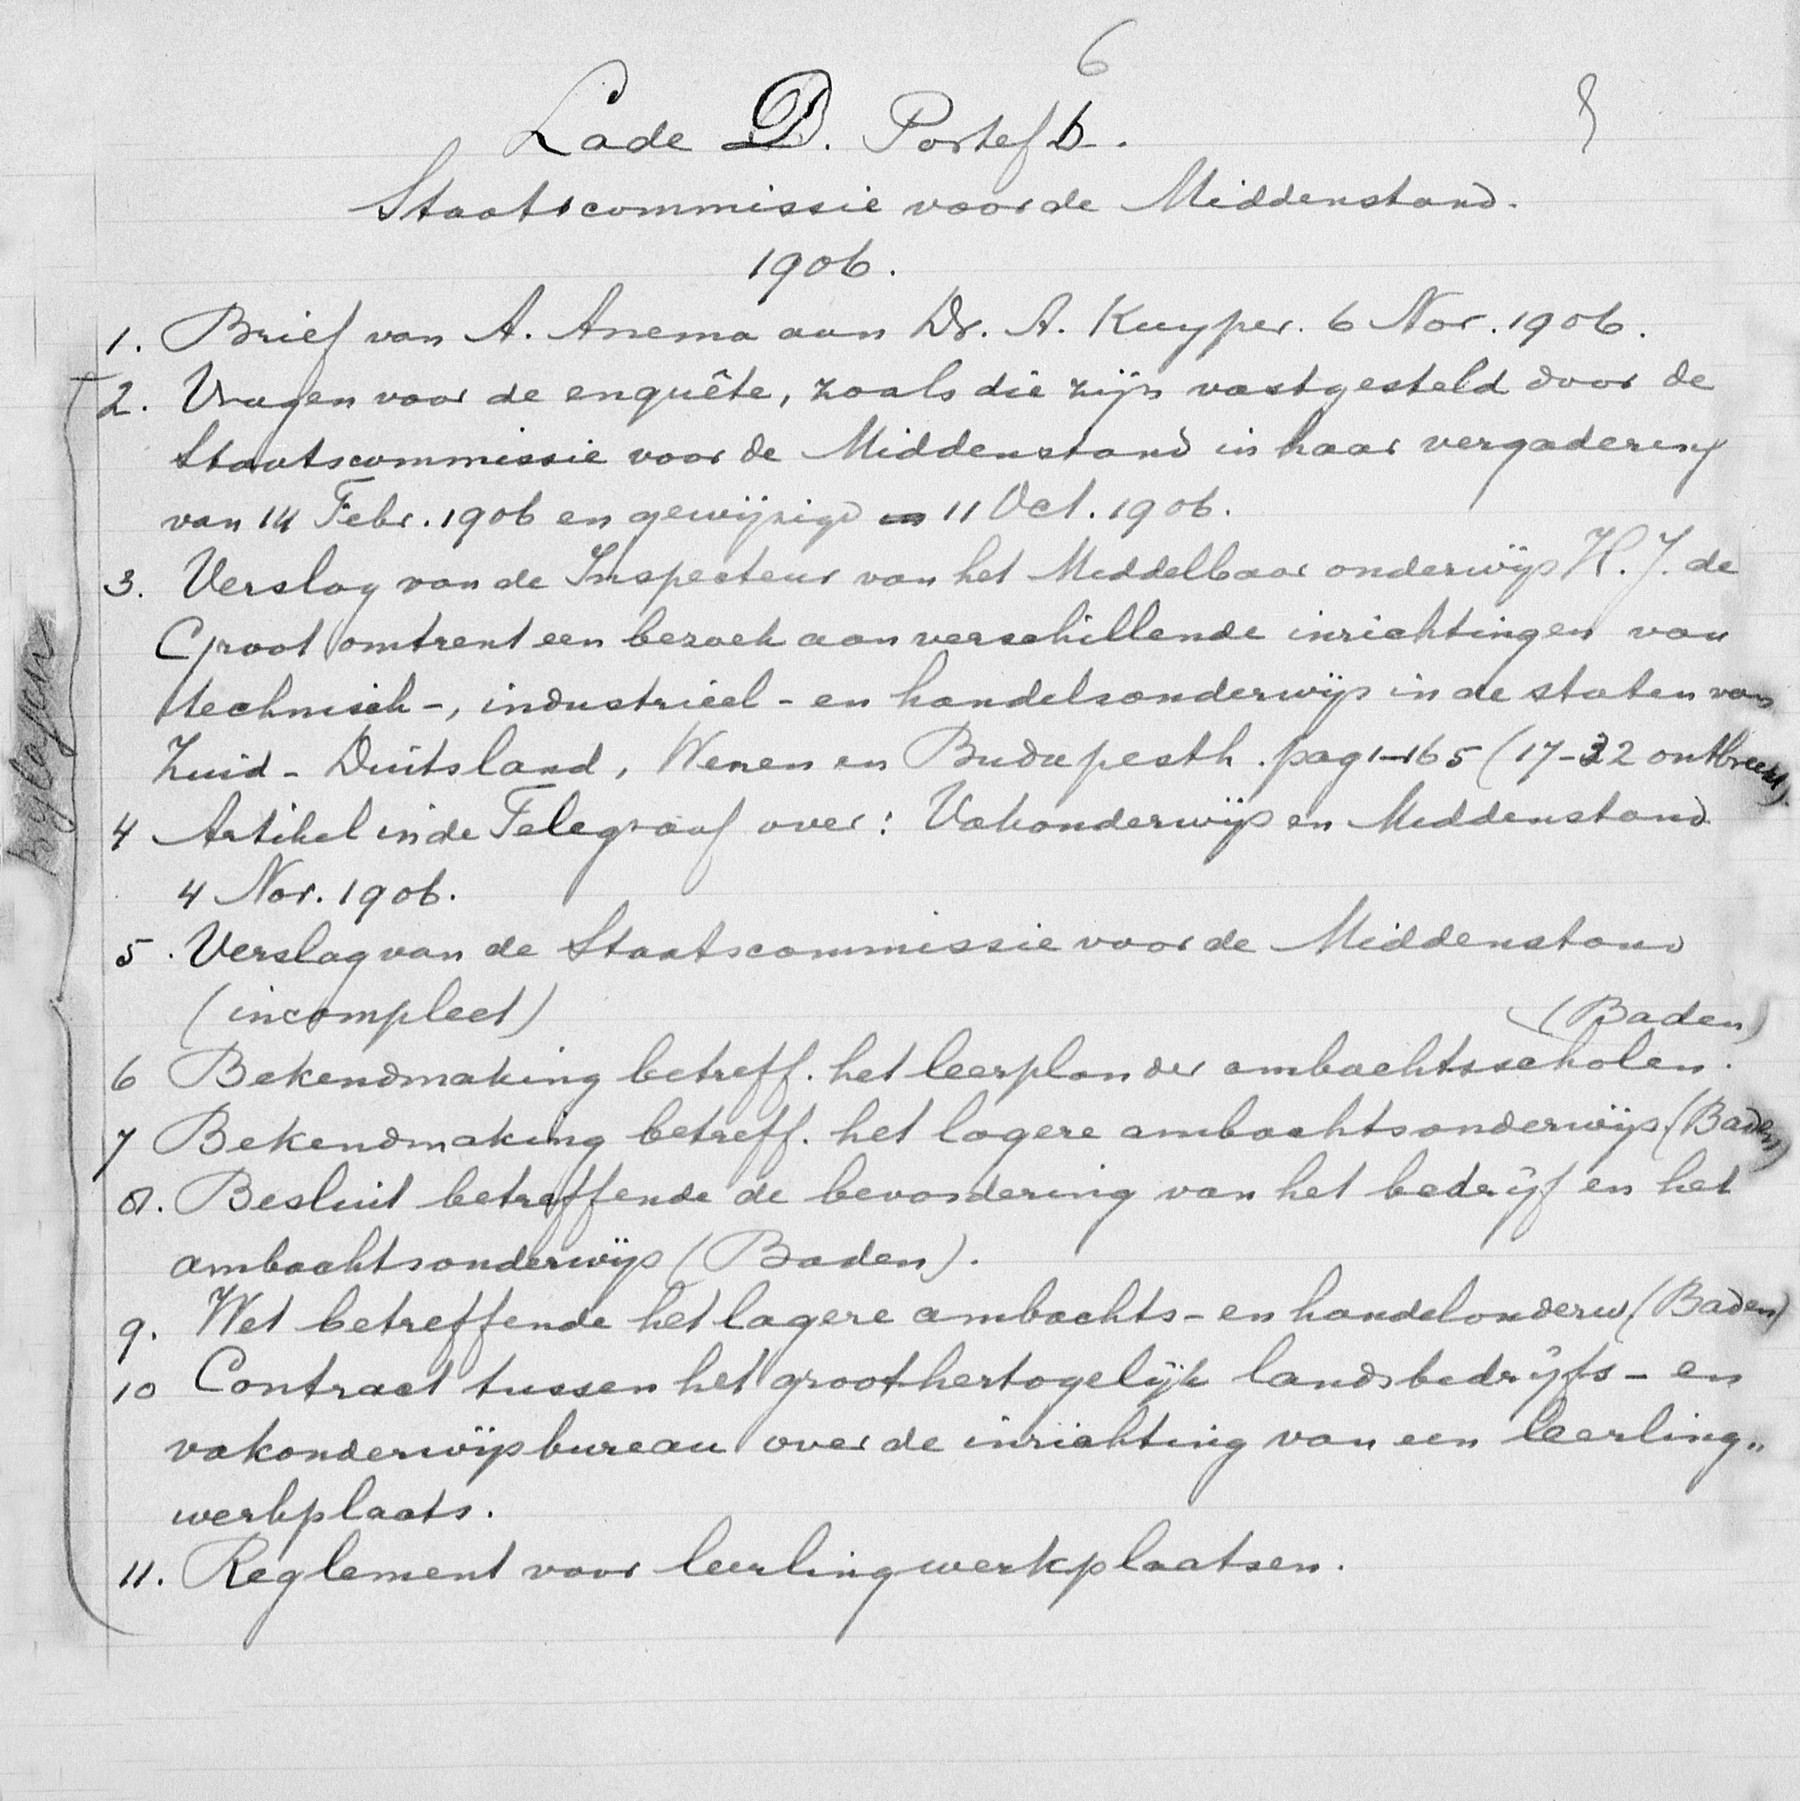 6
Lade B. Portef b.
Staatscommissie voor de Middenstand.
1906.
1. Brief van A. Anema aan Dr. A. Kuyper. 6 Nov. 1906.
2. Vragen voor de enquête, zoals die zijn vastgesteld door de
Staatscommissie voor de Middenstand in haar vergadering
van 14 Febr. 1906 en gewijzigd 11 Oct. 1906.
3. Verslag van de Inspecteur van het Middelbaar onderwijs H. J. de
Groot omtrent een bezoek aan verschillende inrichtingen van
technisch-, industrieel- en handelsonderwijs in de staten van
Zuid-Duitsland, Wenen en Budapesth. pag 1-165 (17-32 ontbreekt).
4 Artikel in de Telegraaf over: Vakonderwijs en Middenstand
4 Nov. 1906.
5. Verslag van de Staatscommissie voor de Middenstand
(incompleet)
6 Bekendmaking betreff. het leerplan der ambachtsscholen. (Baden)
7 Bekendmaking betreff. het lagere ambachtsonderwijs. (Baden)
8. Besluit betreffende de bevordering van het bedrijf en het
ambachtsonderwijs (Baden).
9. Wet betreffende het lagere ambachts- en handelonderw. (Baden)
10 Contract tussen het groothertogelijk landsbedrijfs- en
vakonderwijsbureau over de inrichting van een leerling„
werkplaats.
11. Reglement voor leerlingwerkplaatsen.
bijlagen